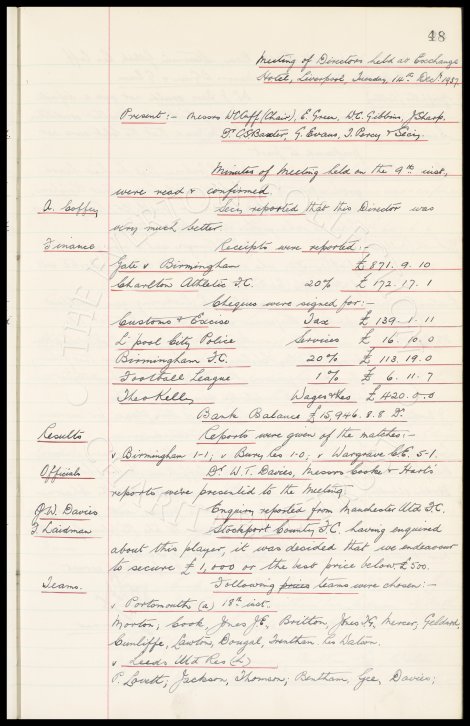 48
Meeting of Directors held at Exchange
Hotel, Liverpool, Tuesday, 14th Decr. 1937.
Present:- Messrs W.C. Cuff (Chair), E. Green, W.C. Gibbins, J. Sharp,
Dr. C.S. Baxter, G. Evans, T. Percy & Secy.
Minutes of Meeting held on the 9th inst.,
were read & confirmed.
A. Coffey Secy. reported that this Director was
very much better.
Finance Receipts were reported:-
Gate v Birmingham £871. 9. 10
Charlton Athletic F.C. 20% £172. 17. 1
Cheques were signed for:-
Customs & Excise Tax £139. 1. 11
L'pool City Police Services £16. 10. 0
Birmingham F.C. 20% £113. 19. 0
Football League 1% £6. 11. 7
Theo Kelly Wages &c £420. 0. 0
Bank Balance £15,946. 8. 8 Dr.
Results Reports were given of the matches:-
v Birmingham 1-1, v Bury Res 1-0, v Wargrave C.E. 5-1.
Officials Dr. W.T. Davies, Messrs Cooke & Harts'
reports were presented to the Meeting.
J.W. Davies Enquiry reported from Manchester Utd F.C.
T. Laidman Stockport County F.C. having enquired
about this player, it was decided that we endeavour
to secure £1,000 or the best price below £500.
Teams. Following prices teams were chosen:-
v Portsmouth (a) 18th inst.
Morton, Cook, Jones J.E, Britton, Jones T.G, Mercer, Geldard,
Cunliffe, Lawton, Dougal, Trentham. Res Watson.
v Leeds Utd Res (h)
P. Lovett, Jackson, Thomson; Bentham, Gee, Davies;